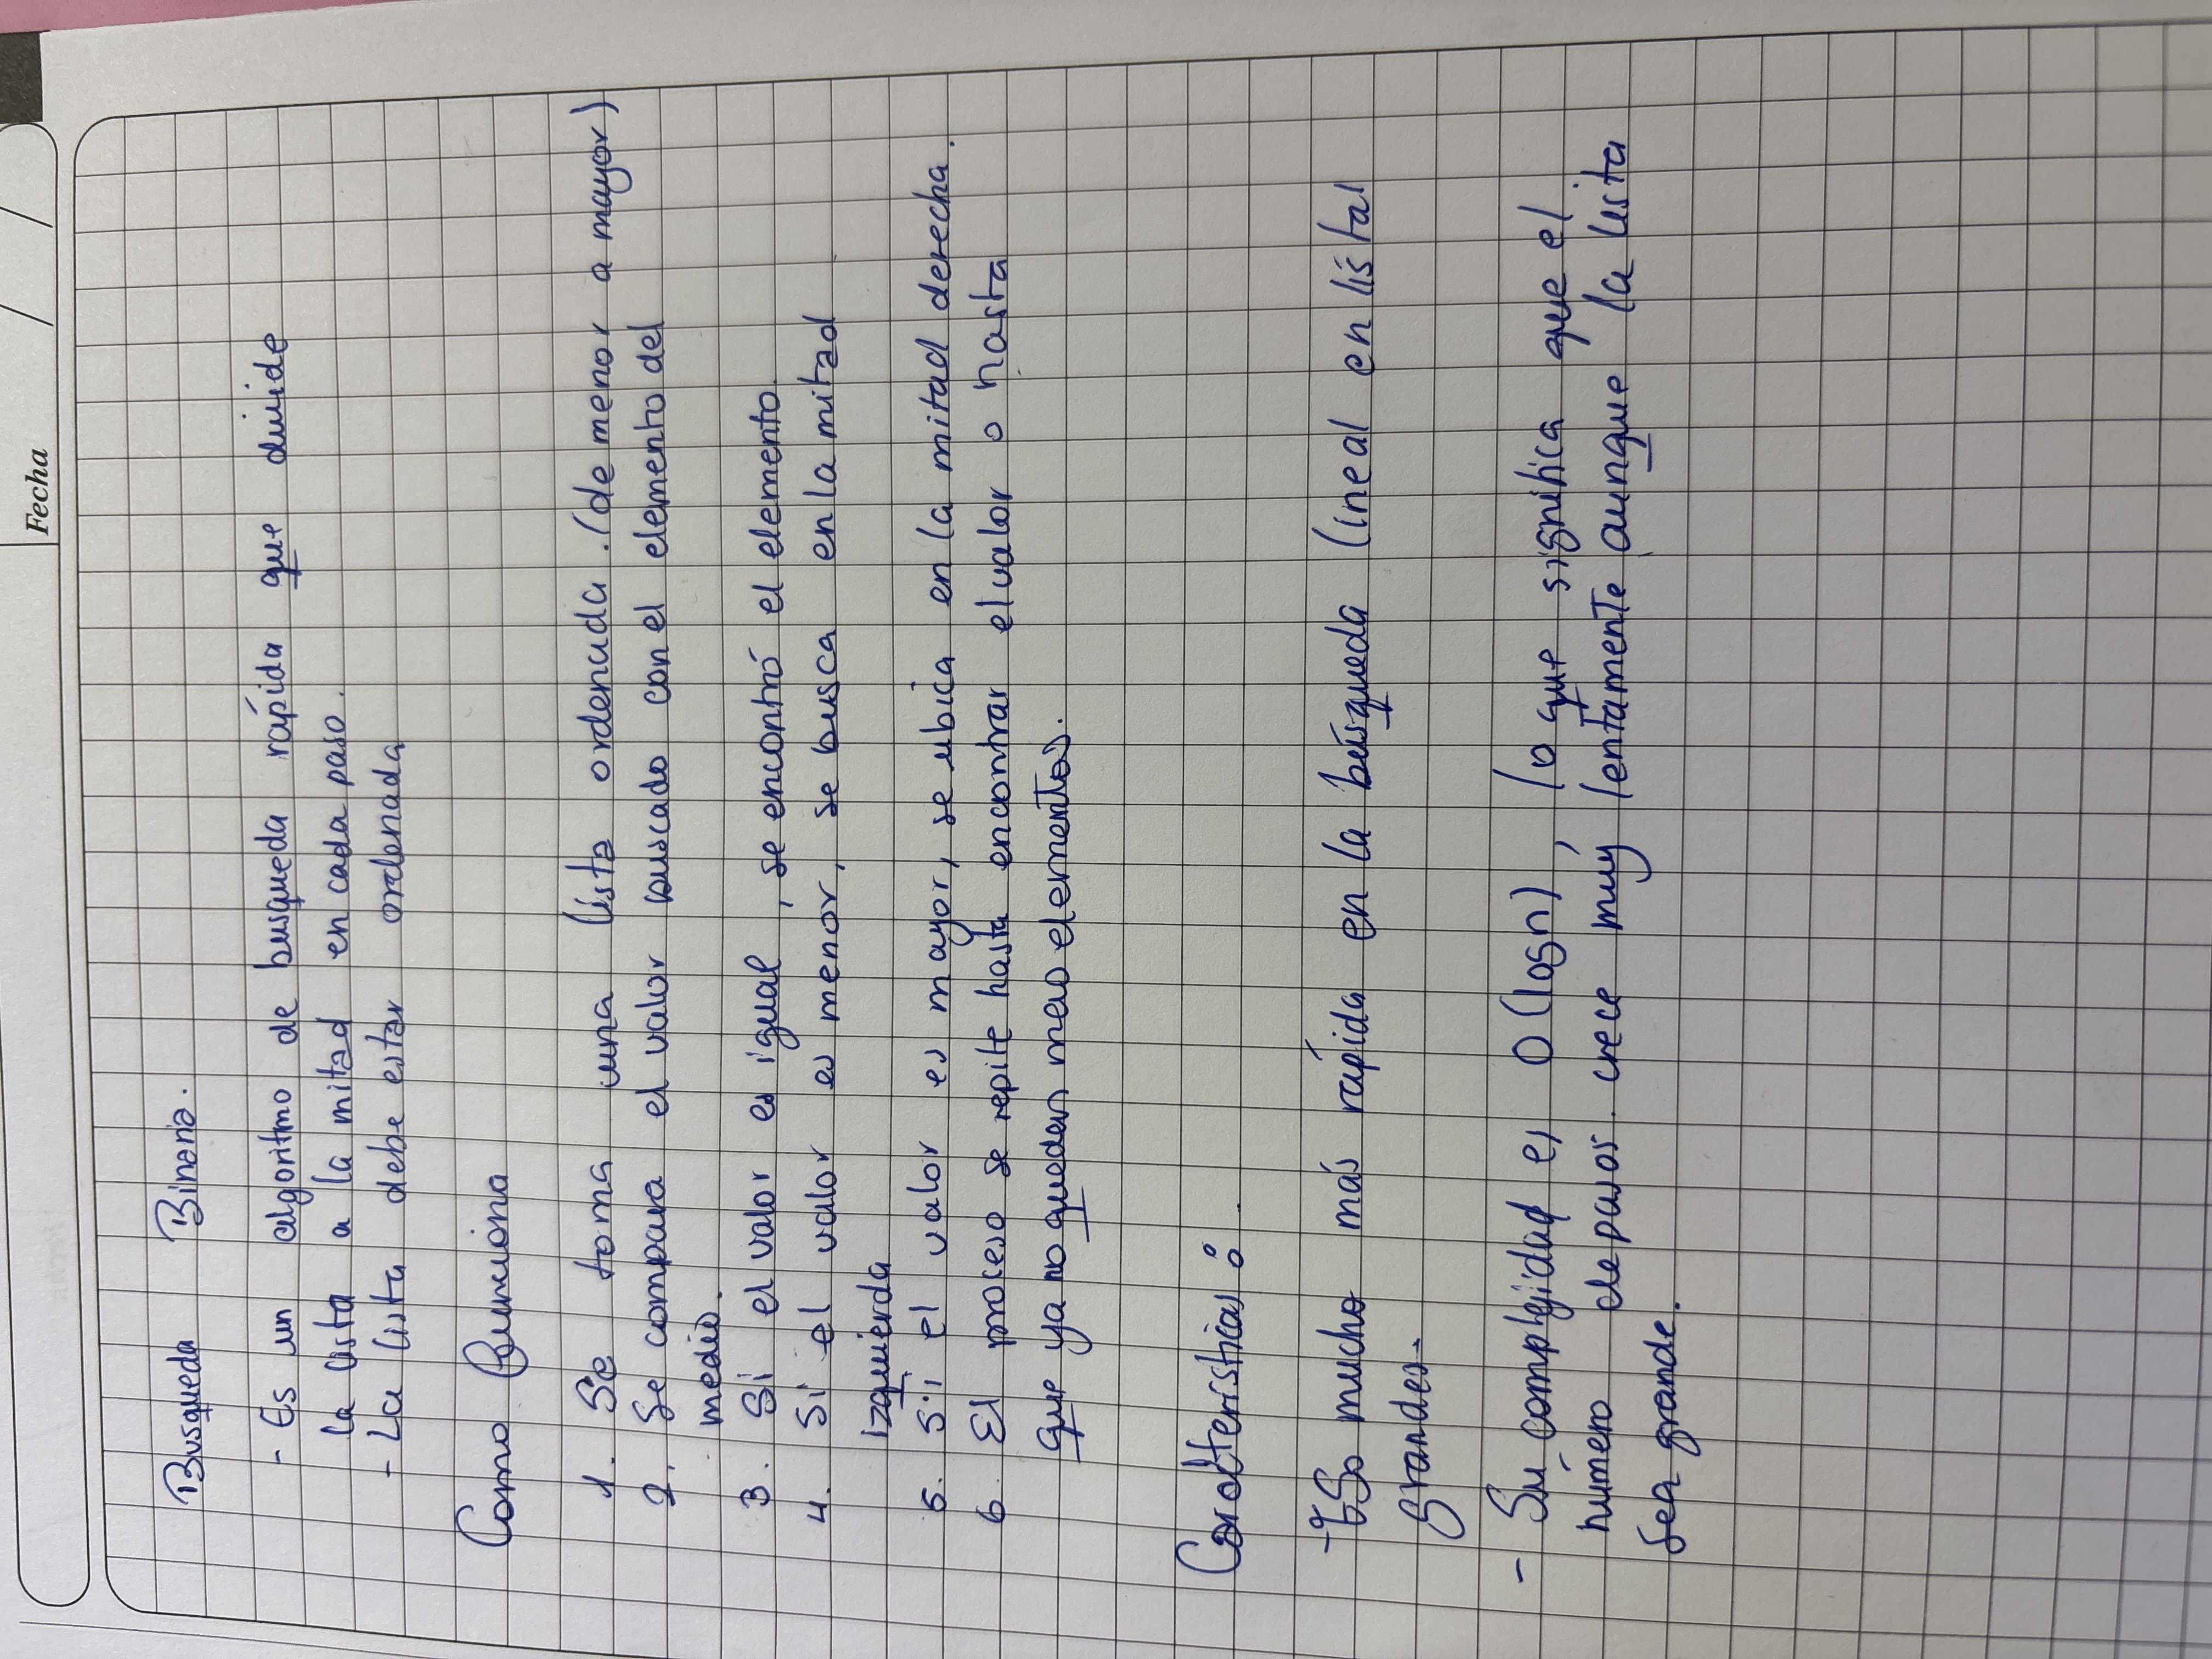 Fecha / /
Busqueda Binaria.
- Es un algoritmo de busqueda rápida que divide
la lista a la mitad en cada paso.
- La lista debe estar ordenada
Como funciona
1. Se toma una lista ordenada. (de menor a mayor)
2. Se compara el valor buscado con el elemento del
medio.
3. Si el valor es igual, se encontró el elemento.
4. Si el valor es menor, se busca en la mitad
izquierda
5. Si el valor es mayor, se ubica en la mitad derecha.
6. El proceso se repite hasta encontrar el valor o hasta
que ya no quedan mas elementos.
Características:
- Es mucho más rápida en la búsqueda lineal en listas
grandes.
- Su complejidad es O(log n), lo que significa que el
número de pasos crece muy lentamente aunque la lista
sea grande.